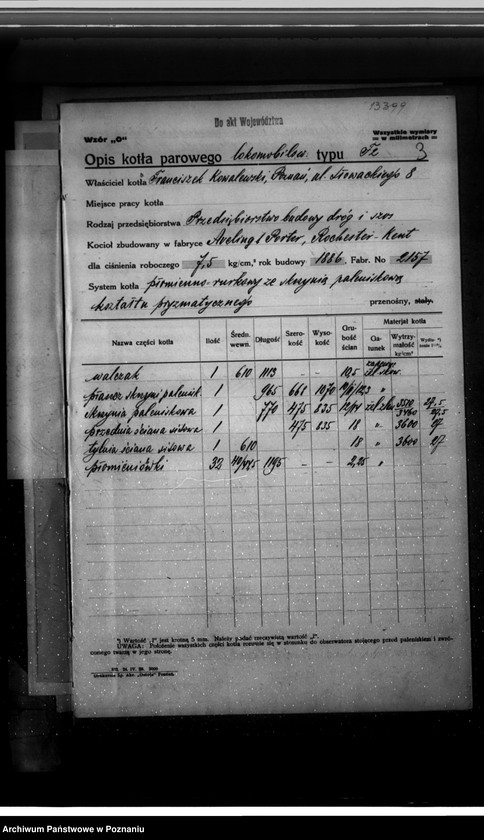 13399
Do akt Województwa
Wzór „O"
Wszystkie wymiary
w milimetrach
Opis kotła parowego lokomobilow. typu Fz 3
Właściciel kotła Franciszek Kowalewski, Poznań, ul. Słowackiego 8
Miejsce pracy kotła
Rodzaj przedsiębiorstwa Przedsiębiorstwo budowy dróg i szos
Kocioł zbudowany w fabryce Aveling & Porter, Rochester-Kent
dla ciśnienia roboczego 7,5 kg/cm,² rok budowy 1886 Fabr. No 2157
System kotła płomienno-rurkowy ze skrzynią paleniskową
kształtu pryzmatycznego przenośny, stały.
Nazwa części kotła Ilość Średn. wewn. Długość Szerokość Wysokość Grubość ścian Materjał kotła Gatunek Wytrzymałość kg/cm²
walczak 1 610 1113 – – 10,5
płaszcz skrzyni palenisk. 1 965 661 1070 "
skrzynia paleniskowa 1 770 475 835 3510 27,5
przednia ściana sitowa 1 475 835 18 " 3600 27
tylnia ściana sitowa 1 610 18 " 3600 27
płomieniówki 32 1195 – – 2,25 "
*) Wartość „l" jest krotną 5 mm. Należy podać rzeczywistą wartość „l".
UWAGA: Położenie wszystkich części kotła rozumie się w stosunku do obserwatora stojącego przed paleniskiem i zwróconego twarzą w jego stronę.